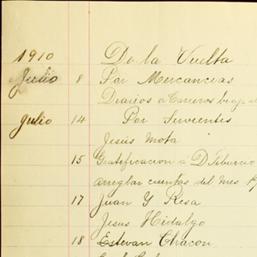 1910 De la Vuelta
Julio 8 Por Mercancias
Diarios a Carreros
Julio 14 Por Sirvientes
Jesus Mota
15 Gratificacion a D Tiburcio
arreglar cuentas del mes
17 Juan Y Resa
Jesus Hidalgo
18 Estevan Chacon